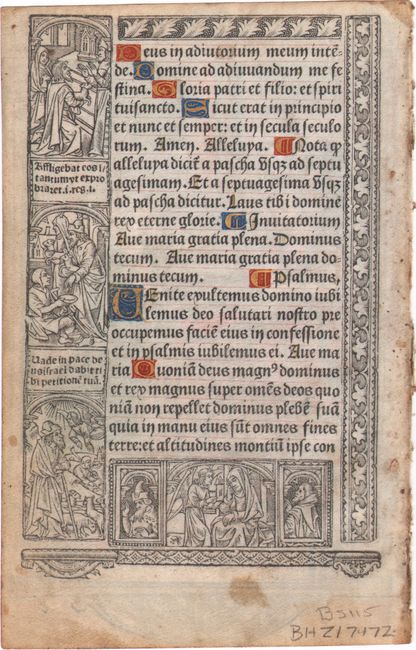 Deus in adiutorium meum inte̅
de. Domine ad adiuuandum me fe
stina. Gloria patri et filio: et spiri
tuisancto. Sicut erat in principio
et nunc et semper: et in secula seculo
rum. Amen. Alleluya. Nota ꝙ
alleluya dicit᷑ a pascha vsqꝫ ad septu
agesimam. Et a septuagesima vsqꝫ
ad pascha dicitur. Laus tibi domine
rex eterne glorie. Inuitatorium
Aue maria gratia plena. Dominus
tecum. Aue maria gratia plena do-
minus tecum. Psalmus,
Venite exultemus domino iubi
lemus deo salutari nostro pre
occupemus facie̅ eius in confessione
et in psalmis iubilemus ei. Aue ma
ria Quonia̅ deus magnꝰ dominus
et rex magnus super om̅es deos quo
nia̅ non repellet dominus plebe̅ sua̅
quia in manu eius su̅t omnes fines
terre: et altitudines montiu̅ ipse con
Affligebat eos i
tantumvt expro
braret. i. reg. i.
Uade in pace de
us israel dabit ti
bi petitione̅ tua̅.
B5115
BHZ17472